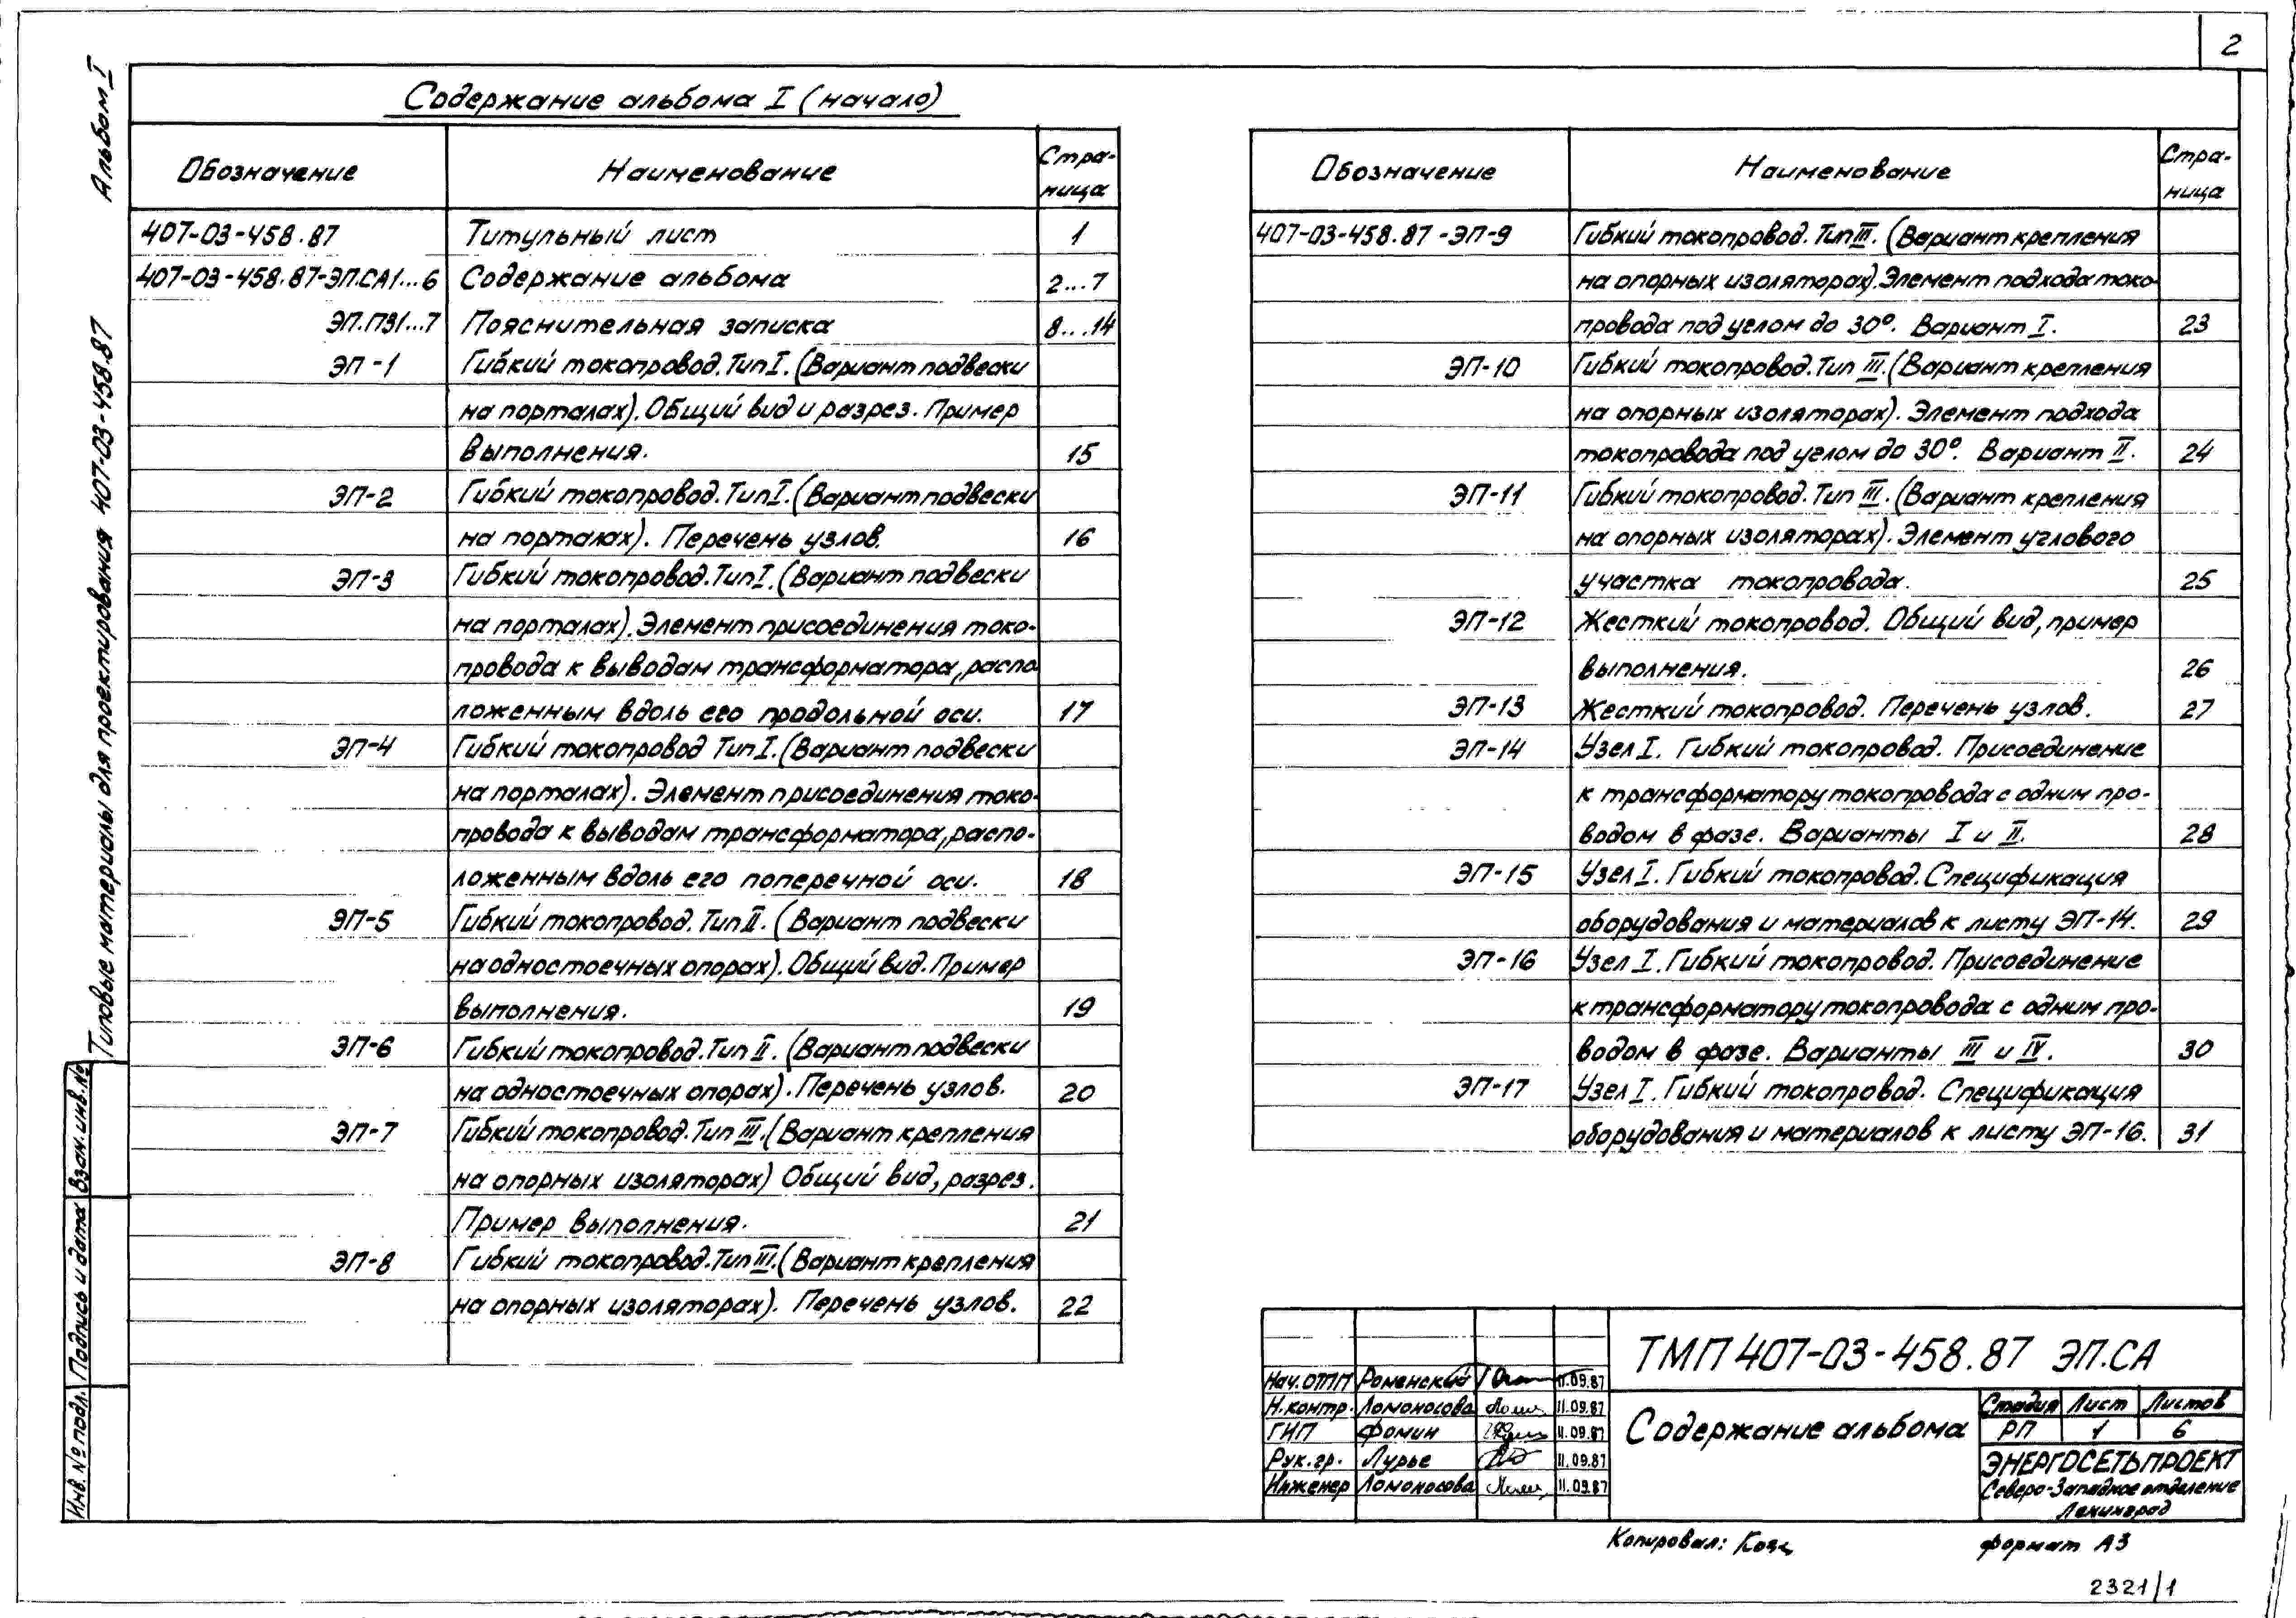 2
Альбом I
Типовые материалы для проектирования 407-03-458.87
Содержание альбома I (начало)
Обозначение Наименование Стра-
ница
407-03-458.87 Титульный лист 1
407-03-458.87-ЭП.СА1...6 Содержание альбома 2...7
ЭП.ПЗ1...7 Пояснительная записка 8...14
ЭП-1 Гибкий токопровод. Тип I. (Вариант подвески
на порталах). Общий вид и разрез. Пример
выполнения. 15
ЭП-2 Гибкий токопровод. Тип I. (Вариант подвески
на порталах). Перечень узлов. 16
ЭП-3 Гибкий токопровод. Тип I. (Вариант подвески
на порталах). Элемент присоединения токо-
провода к выводам трансформатора, распо
ложенным вдоль его продольной оси. 17
ЭП-4 Гибкий токопровод Тип I. (Вариант подвески
на порталах). Элемент присоединения токо-
провода к выводам трансформатора, распо-
ложенным вдоль его поперечной оси. 18
ЭП-5 Гибкий токопровод. Тип II. (Вариант подвески
на одностоечных опорах). Общий вид. Пример
выполнения. 19
ЭП-6 Гибкий токопровод. Тип II. (Вариант подвески
на одностоечных опорах). Перечень узлов. 20
ЭП-7 Гибкий токопровод. Тип III. (Вариант крепления
на опорных изоляторах) Общий вид, разрез.
Пример выполнения. 21
ЭП-8 Гибкий токопровод. Тип III. (Вариант крепления
на опорных изоляторах). Перечень узлов. 22
Обозначение Наименование Стра-
ница
407-03-458.87-ЭП-9 Гибкий токопровод. Тип III. (Вариант крепления
на опорных изоляторах). Элемент подхода токо-
провода под углом до 30°. Вариант I. 23
ЭП-10 Гибкий токопровод. Тип III. (Вариант крепления
на опорных изоляторах). Элемент подхода
токопровода под углом до 30°. Вариант II. 24
ЭП-11 Гибкий токопровод. Тип III. (Вариант крепления
на опорных изоляторах). Элемент углового
участка токопровода. 25
ЭП-12 Жесткий токопровод. Общий вид, пример
выполнения. 26
ЭП-13 Жесткий токопровод. Перечень узлов. 27
ЭП-14 Узел I. Гибкий токопровод. Присоединение
к трансформатору токопровода с одним про-
водом в фазе. Варианты I и II. 28
ЭП-15 Узел I. Гибкий токопровод. Спецификация
оборудования и материалов к листу ЭП-14. 29
ЭП-16 Узел I. Гибкий токопровод. Присоединение
к трансформатору токопровода с одним про-
водом в фазе. Варианты III и IV. 30
ЭП-17 Узел I. Гибкий токопровод. Спецификация
оборудования и материалов к листу ЭП-16. 31
Инв. № подл. Подпись и дата Взам. инв. №
ТМП 407-03-458.87 ЭП.СА
Нач. ОТП Роменский 11.09.87
Н. контр. Ломоносова 11.09.87
ГИП Фомин 11.09.87
Рук. гр. Лурье 11.09.87
Инженер Ломоносова 11.09.87
Содержание альбома
Стадия Лист Листов
РП 1 6
ЭНЕРГОСЕТЬПРОЕКТ
Северо-Западное отделение
Ленинград
Копировал: формат А3
2321/1